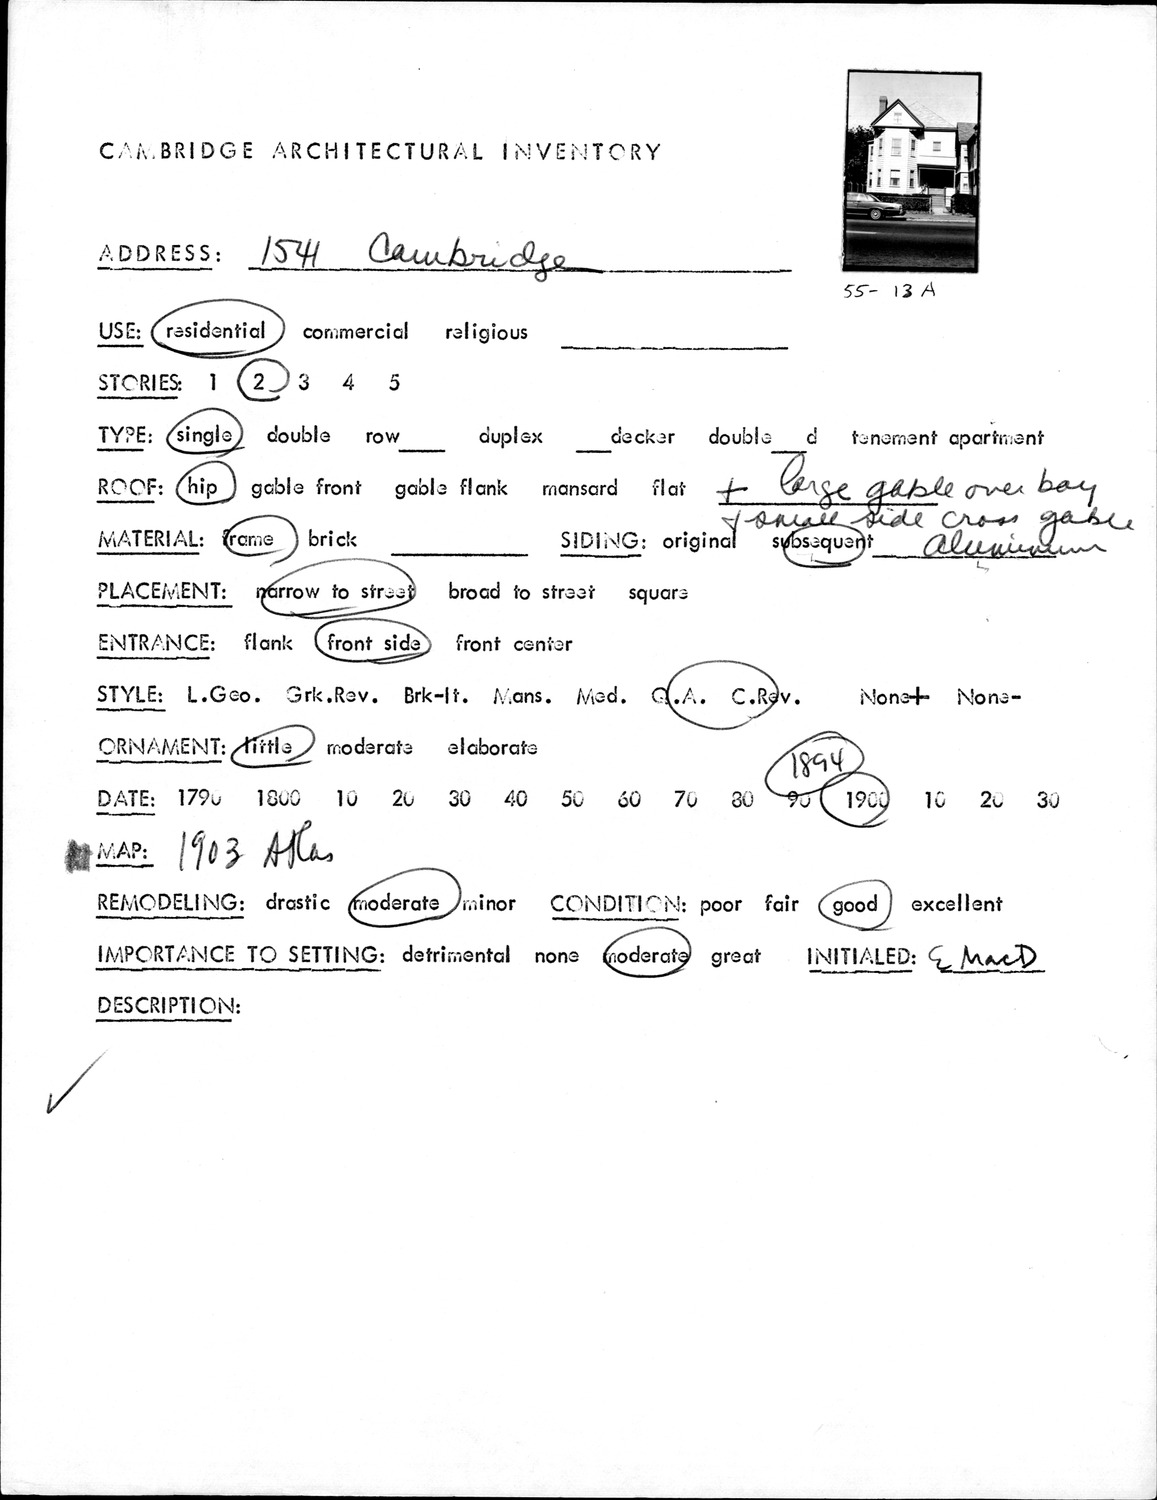 CAMBRIDGE ARCHITECTURAL INVENTORY
55- 13 A
ADDRESS: 1541 Cambridge
USE: residential commercial religious
STORIES: 1 2 3 4 5
TYPE: single double row___ duplex ___decker double___d tenement apartment
ROOF: hip gable front gable flank mansard flat + large gable over bay
+ small side cross gable
MATERIAL: frame brick SIDING: original subsequent Aluminum
PLACEMENT: narrow to street broad to street square
ENTRANCE: flank front side front center
STYLE: L.Geo. Grk.Rev. Brk-It. Mans. Med. Q.A. C.Rev. None+ None-
ORNAMENT: little moderate elaborate
1894
DATE: 1790 1800 10 20 30 40 50 60 70 80 90 1900 10 20 30
MAP: 1903 Atlas
REMODELING: drastic moderate minor CONDITION: poor fair good excellent
IMPORTANCE TO SETTING: detrimental none moderate great INITIALED: E MacD
DESCRIPTION: